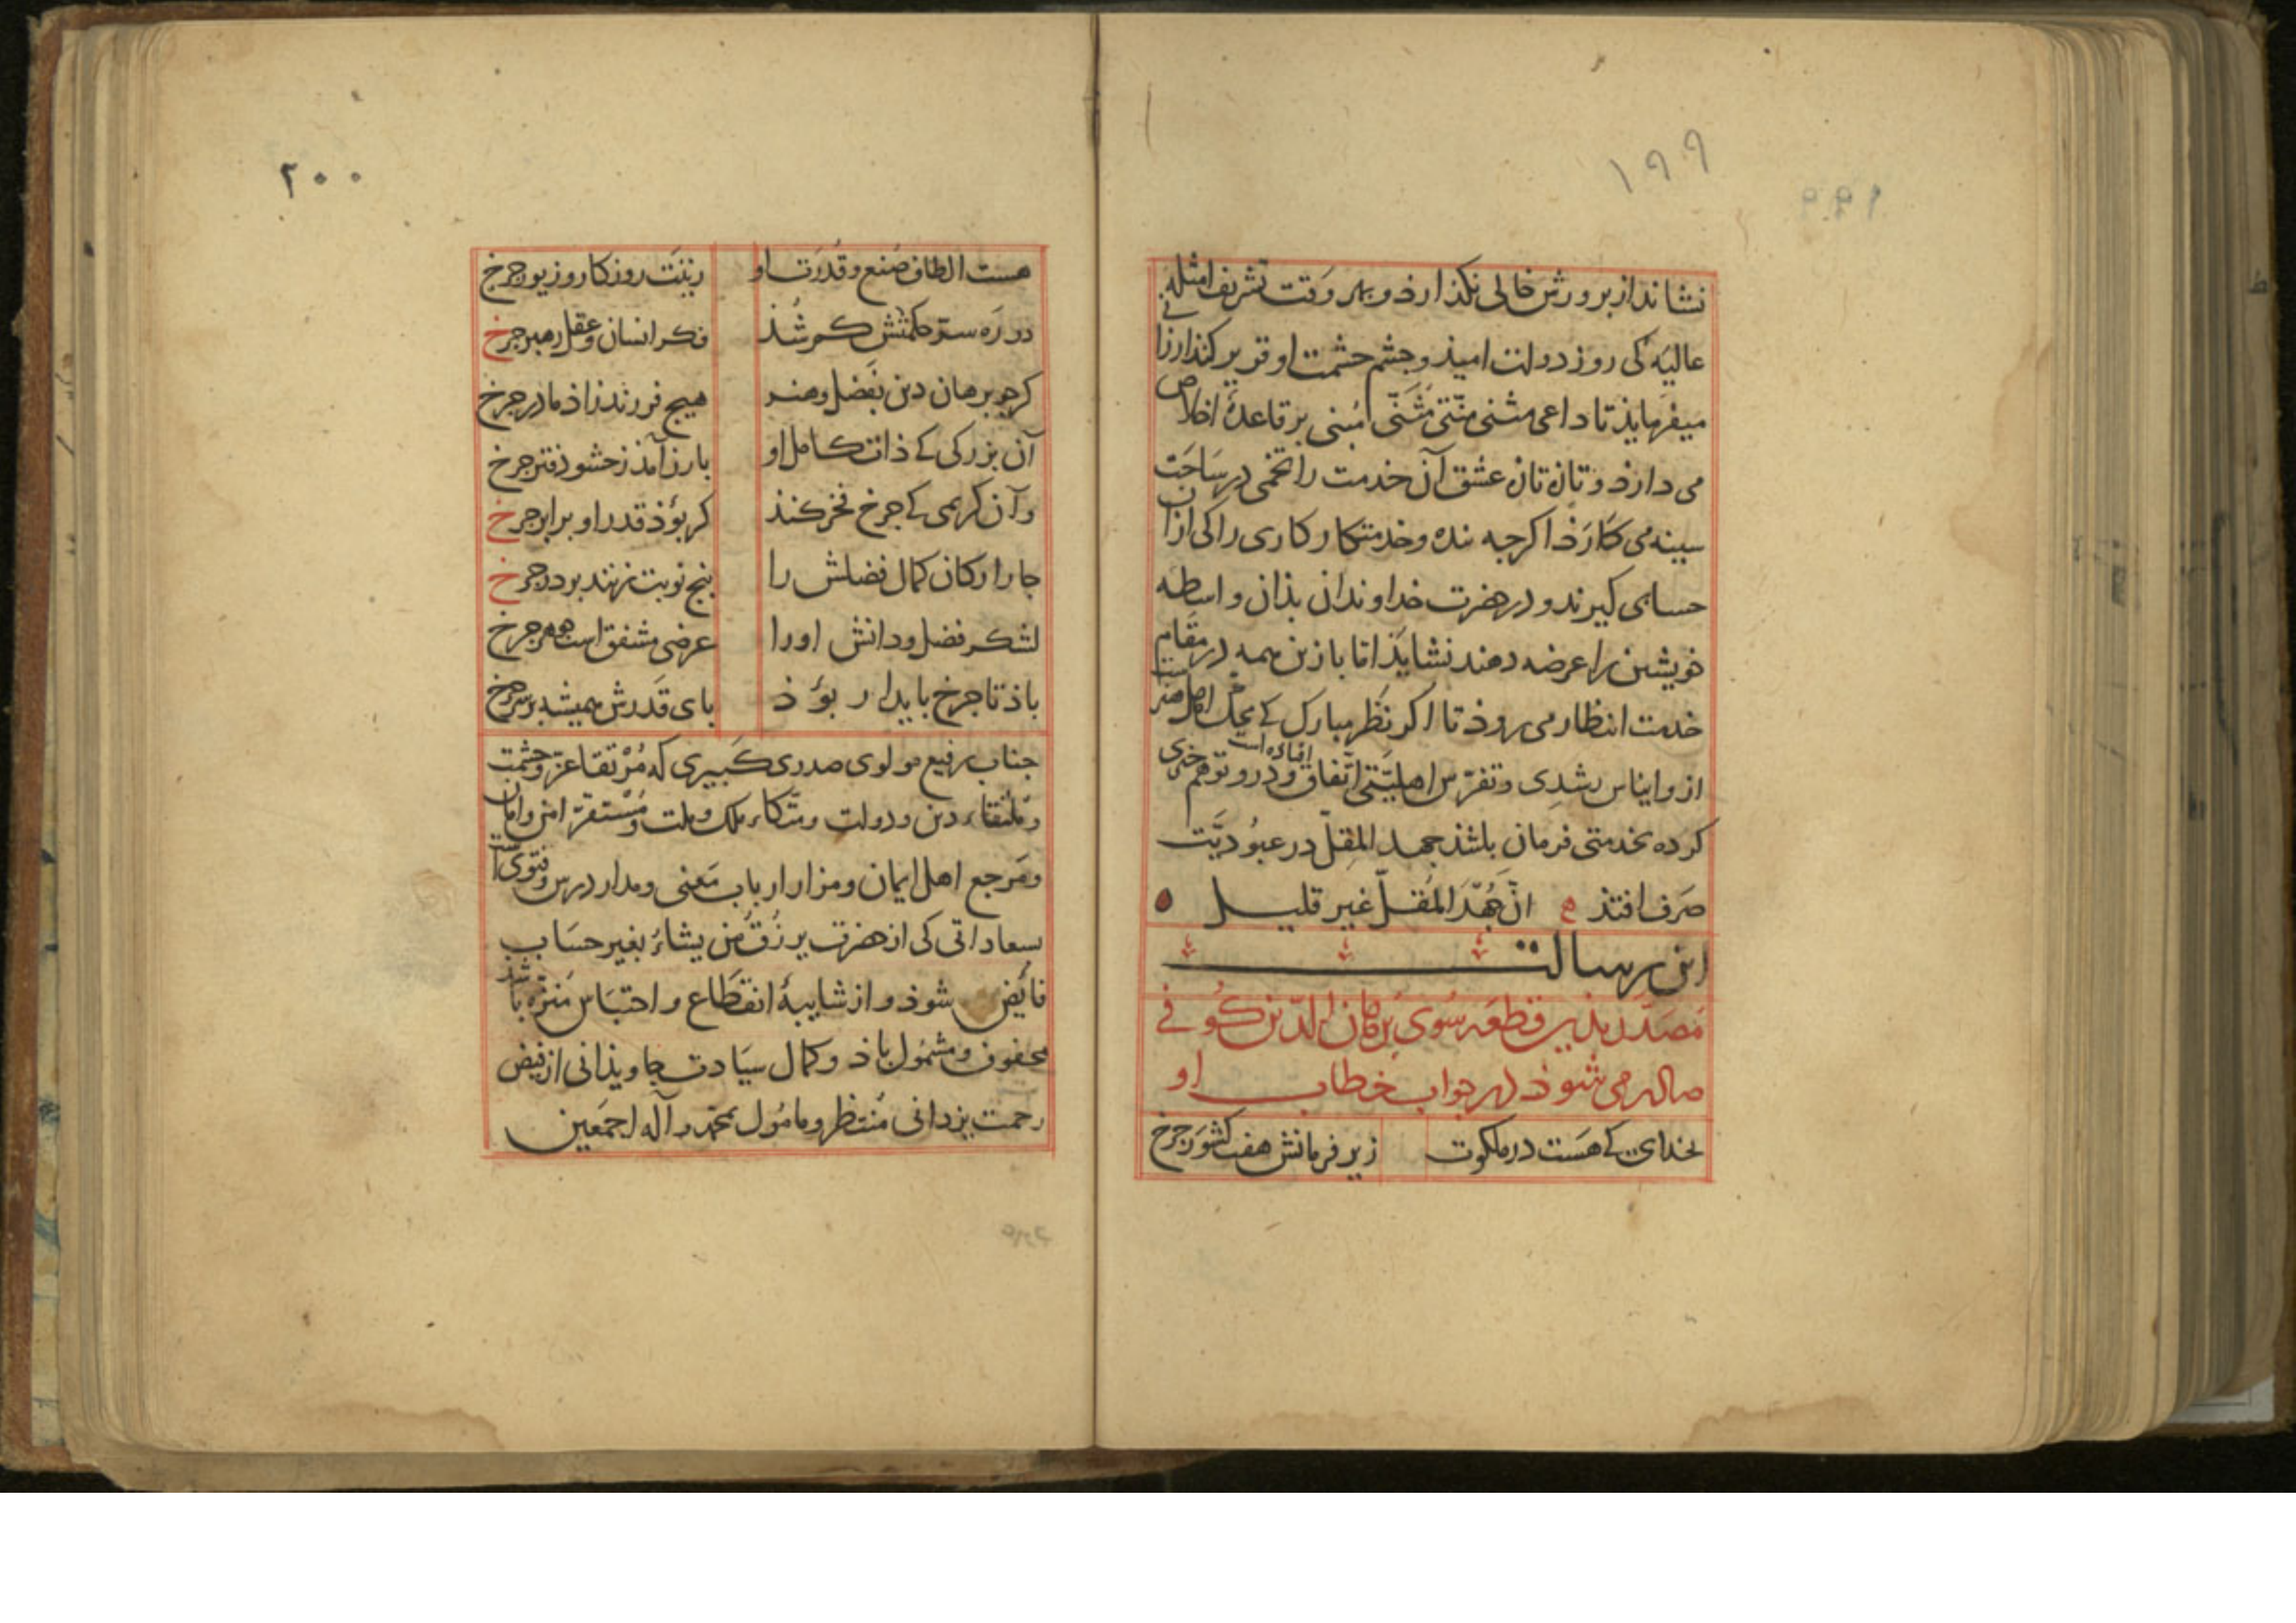 ١٩٩
نشاند از برورش خالی نکذارذ و بهر وقت تشریف امثلهٔ
عالیه کی روز دولت امیذ و جشم حشمت او قریر کنذ ارزانی
میفرمایذ تا داعی مثنی مُبنی بر قاعدهٔ اخلاص
می دارذ و تان تان عشق آن خدمت را تخمی در ساحَت
سینه می کارَذ اکرجه بنده و خدمتکار کاری را کی ازان
حسابی کیرند و در حضرت خداوندان بذان واسطه
خویشتن را عرضه دهند نشایَذ اما با زین همه در مقام
خدمت انتظار می روذ تا اکر نظر مبارک کے محک اصل هنرست
از و ایناس رشدی و تفرّس اهلیّتی اتّفاق افتاده است و درو توهم خیری
کرده بخدمتی فرمان باشذ جهد المُقِلّ در عبُودیَّت
صَرف افتذ ع انّ جُهْدَ المُقلّ غیر قلیل
این رسالت
مُصَدَّر بذین قطعه سُوی برهان الدّین کُوفی
صادر می شوذ در جواب خطاب او
بخدای کے هَست در ملکوت زیر فرمانش هفت کشوَر جرخ
٢٠٠
هست الطاف صُنع و قُدرَت او زینَت روزکار و زیور جرخ
در رَه ستر حکمتش کم شُذ فکر انسان و عقل رهبر جرخ
کر جو برهان دین بفَضل و هنر هیج فرزند زاذ مادر جرخ
آن بزرکی کے ذات کامل او بارز آمذ ز حشو دفتر جرخ
و آن کریمی کے جرخ فخر کنذ کر بُوَذ قدر او برابر جرخ
جار ارکان کمال فضلش را بنج نوبت زنند بر در جرخ
لشکر فضل و دانش اورا عرضی مشفق است جوهر جرخ
باذ تا جرخ بایدار بُوَذ بای قَدرش همیشه بر سر جرخ
جناب رفیع مولوی صدری کَبیری که مُرْتقاء عزّ و حشمت
و مُلتقاء دین و دولت و متّکاء ملک و ملت و مُسْتقرّ امن و امان
و مَرجع اهل ایمان و مزار ارباب مَعنی و مدار درس و فتوی است
بسعاداتی کی از حضرت یرزُقُ مَن یشاءُ بغیر حسَاب
فائض شوذ و از شایبهٔ انقطاع و احتبَاس مُنزّه باشذ
محفوف و مشمُول باذ و کمال سیَادت جاویذانی از فیض
رحمت یزدانی مُنتظر و مامُول بمحمّد و آله اجمَعین